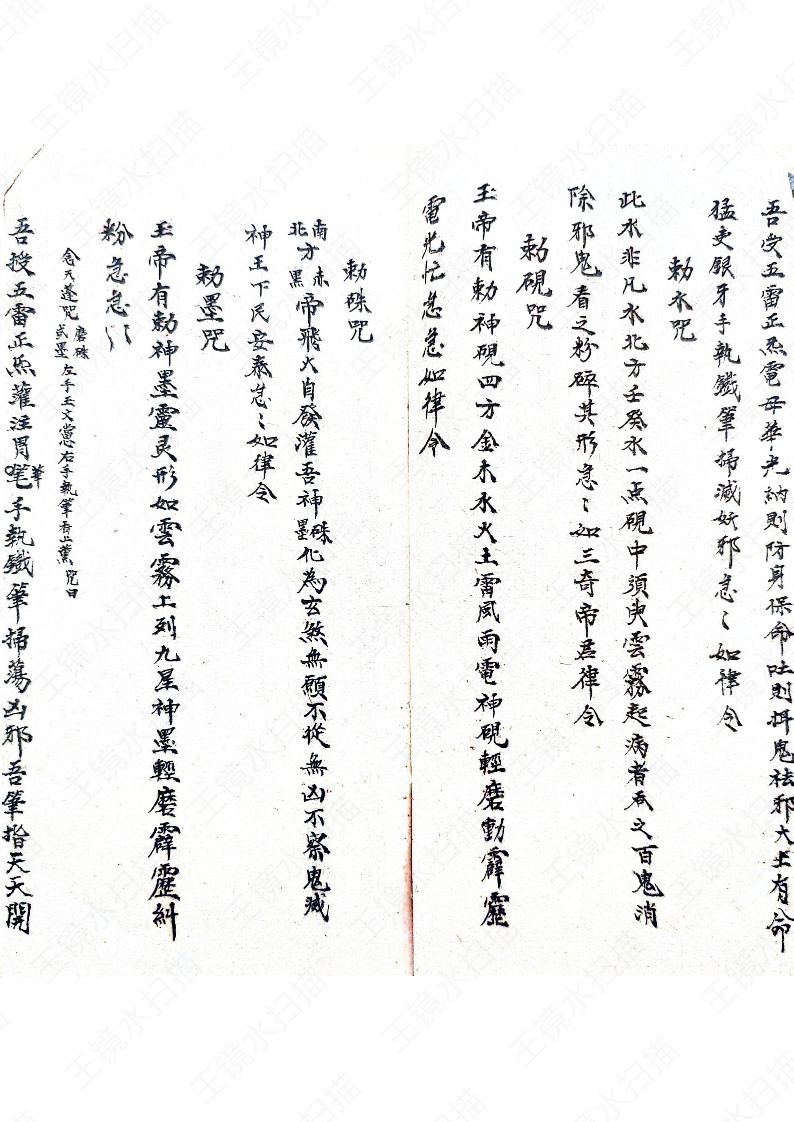 吾受五雷正炁電母華光納則防身保命吐則捍鬼袪邪太上有命
猛吏銀牙手執鐵筆掃滅妖邪急〻如律令
勅水咒
此水非凡水北方壬癸水一点硯中須臾雲霧起病者吞之百鬼消
除邪鬼看之粉碎其形急〻如三奇帝君律令
勅硯咒
玉帝有勅神硯四方金木水火土雷風雨電神硯輕磨動霹靂
電光忙急急如律令
勅硃咒
南北方赤黑帝飛火自發灌吾神硃墨化為玄煞無願不從無凶不察鬼滅
神王下民安泰急〻如律令
勅墨咒
玉帝有勅神墨靈灵形如雲霧上列九星神墨輕磨霹靂糾
粉急急〻〻
念天蓬咒磨硃或墨左手玉文惌右手執筆香上薰咒曰
吾授五雷正炁灌注胃筆手執鐵筆掃蕩凶邪吾筆指天天開
王镜水扫描